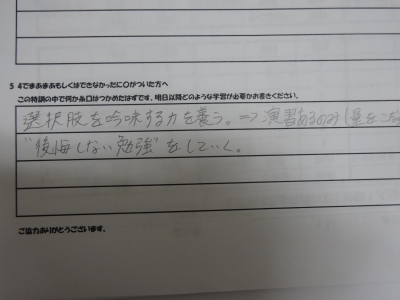 5 4でまあまあもしくはできなかったに〇がついた方へ
この特訓の中で何か糸口はつかめたはずです。明日以降どのような学習が必要かお書きください。
選択肢を吟味する力を養う。⇒演習あるのみ(量をこな
"後悔しない勉強"をしていく。
ご協力ありがとうございます。